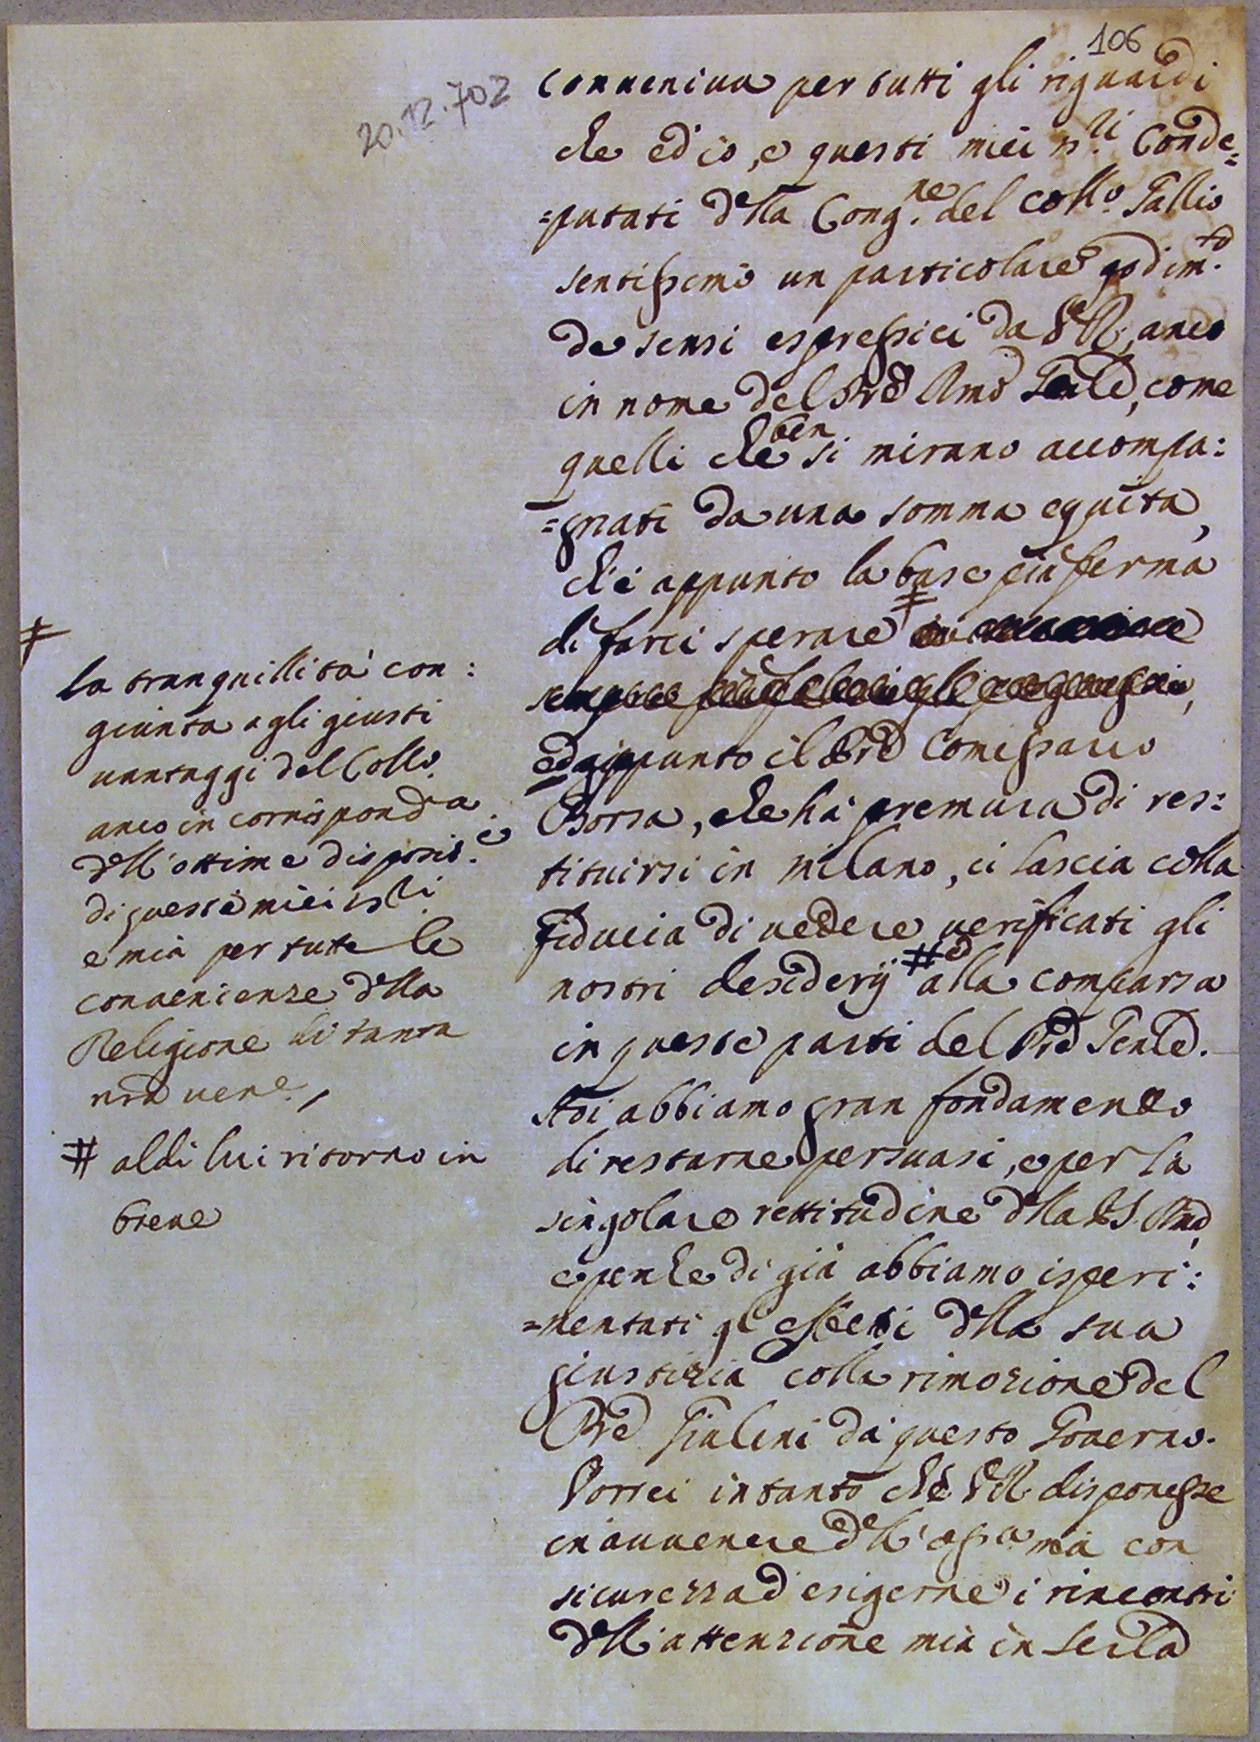 106
20.12.702
conveniva per tutti gli riguardi
che ed io, e questi miei s.ri Conde=
=putati d'lla Cong.ne del Coll.o Gallio
sentissimo un particolare godim.to
de sensi espressici da V. R., anco
in nome del Pré Rmó Genlé, come
quelli che ben si mirano accompa:
=gnati da una somma equità,
ch'è appunto la base più ferma
di farci sperare ‡
ed appunto il Pré Comissario
Borsa, che hà premura di res:
tituirsi in Milano, ci lascia colla
fiducia di vedere verificati gli
nostri desiderij # ed alla comparsa
in queste parti del Pré Genlé.
Noi abbiamo gran fondamento
di restarne persuasi, e per la
singolare rettitudine d'lla
e perche di già abbiamo isperi:
=mentati gl'effetti d'lla sua
giustizia colla rimozione del
Pré Giulini da questo Governo.
Vorrei intanto che V. R. disponesse
in avvenire d'll'opra mia con
sicurezza d'esigerne i rincontri
d'll'attenzione mia in
‡
la tranquillità con:
giunta agli giusti
vantaggi del Collo.
anco in corrispond.a
d'll'ottime disposiz.i
di questi miei s.ri
e mia per tutte le
convenienze d'lla
Religione di tanta
nrá ven.e,
# al di lui ritorno in
breve